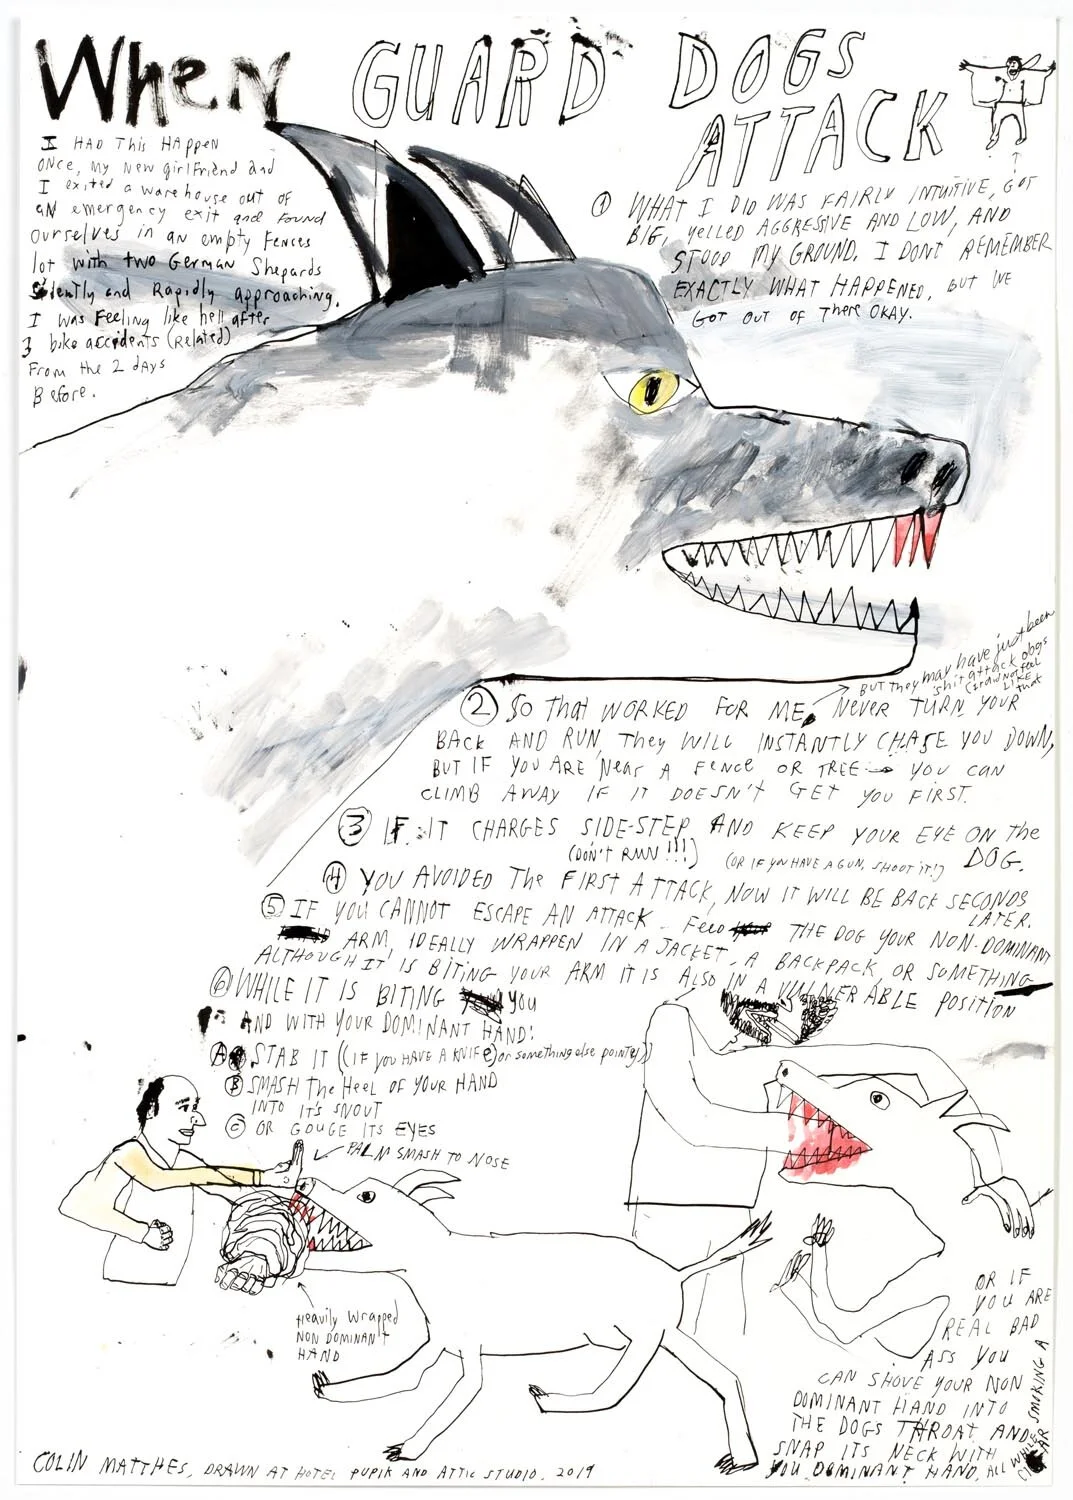 When GUARD DOGS
ATTACK
I HAD THIS HAPPEN
ONCE, MY NEW girlfriend and
I exited a warehouse out of
aN emergency exit and found
ourselves in an empty fences
lot with two German Shepards
Silently and Rapidly approaching.
I was feeling like hell after
3 bike accidents (related)
From the 2 days
Before.
① WHAT I DID WAS FAIRLY INTUITIVE, GOT
BIG, yelled AGGRESSIVE AND LOW, AND
STOOD MY GROUND. I DONT REMEMBER
EXACTLY WHAT HAPPENED, BUT WE
GOT OUT OF THERE OKAY.
BUT they may have just been
shit attack dogs
(I did not feel
LIKE
that
② SO that WORKED FOR ME, Never TURN YOUR
BACK AND RUN, They WILL INSTANTLY CHASE YOU DOWN,
BUT IF YOU ARE Near A FENCE OR TREE YOU CAN
CLIMB AWAY IF IT DOESN'T GET YOU FIRST.
③ IF IT CHARGES SIDE-STEP AND KEEP YOUR EYE ON the
DOG.
(DON'T RUN!!!) (OR IF YOU HAVE A GUN, SHOOT IT!)
④ YOU AVOIDED THE FIRST ATTACK, NOW IT WILL BE BACK SECONDS
LATER.
⑤ IF YOU CANNOT ESCAPE AN ATTACK - FEED THE DOG YOUR NON-DOMINANT
ARM, IDEALLY WRAPPEN IN A JACKET, A BACKPACK, OR SOMETHING
ALTHOUGH IT IS BITING YOUR ARM IT IS ALSO IN A VULNERABLE POSITION
⑥ WHILE IT IS BITING YOU
AND WITH YOUR DOMINANT HAND:
A STAB IT ((IF YOU HAVE A KNIFE) or something else pointy))
Ⓑ SMASH THE Heel OF YOUR HAND
INTO IT'S SNOUT
Ⓒ OR GOUGE ITS EYES
PALM SMASH TO NOSE
Heavily Wrapped
NON DOMINANT
HAND
OR IF
YOU ARE
REAL BAD
ASS YOU
CAN SHOVE YOUR NON
DOMINANT HAND INTO
THE DOGS THROAT AND
SNAP ITS NECK WITH
YOU DOMINANT HAND, ALL WHILE SMOKING A
CIGAR
COLIN MATTHES, DRAWN AT HOTEL PUPIK AND ATTIC STUDIO, 2019